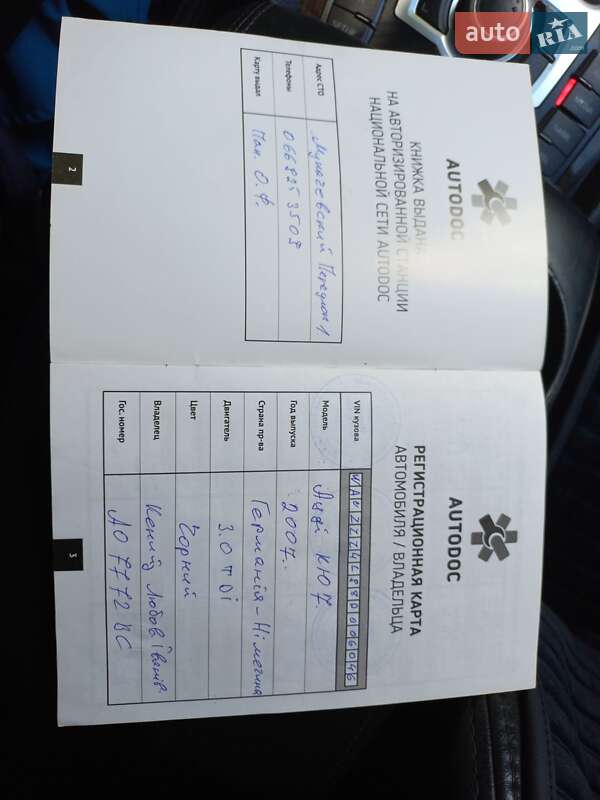 auto RIA.com
AUTODOC
КНИЖКА ВЫДАНА
НА АВТОРИЗИРОВАННОЙ СТАНЦИИ
НАЦИОНАЛЬНОЙ СЕТИ AUTODOC
Адрес СТО Мукачевский Переулок 1
Телефоны 0668253509
Карту выдал Пан. О. Ф.
2
AUTODOC
РЕГИСТРАЦИОННАЯ КАРТА
АВТОМОБИЛЯ / ВЛАДЕЛЬЦА
VIN кузова WAUZZZ4L88D006046
Модель Ауді КЮ7
Год выпуска 2007.
Страна пр-ва Германія - Німеччина
Двигатель 3.0 TDi
Цвет Чорний
Владелец Любов
Гос. номер АО7772ВС
3